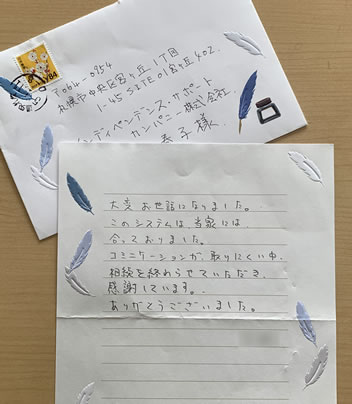 〒064-0954
札幌市中央区宮ヶ丘1丁目
1-45 SITE01宮ヶ丘402.
インディペンデンス・サポート
カンパニー株式会社.
子様.
84
大変お世話になりました。
このシステムは、当家には
合っておりました。
コミニケーションが、取りにくい中、
相続を終わらせていただき、
感謝しています。
ありがとうございました。